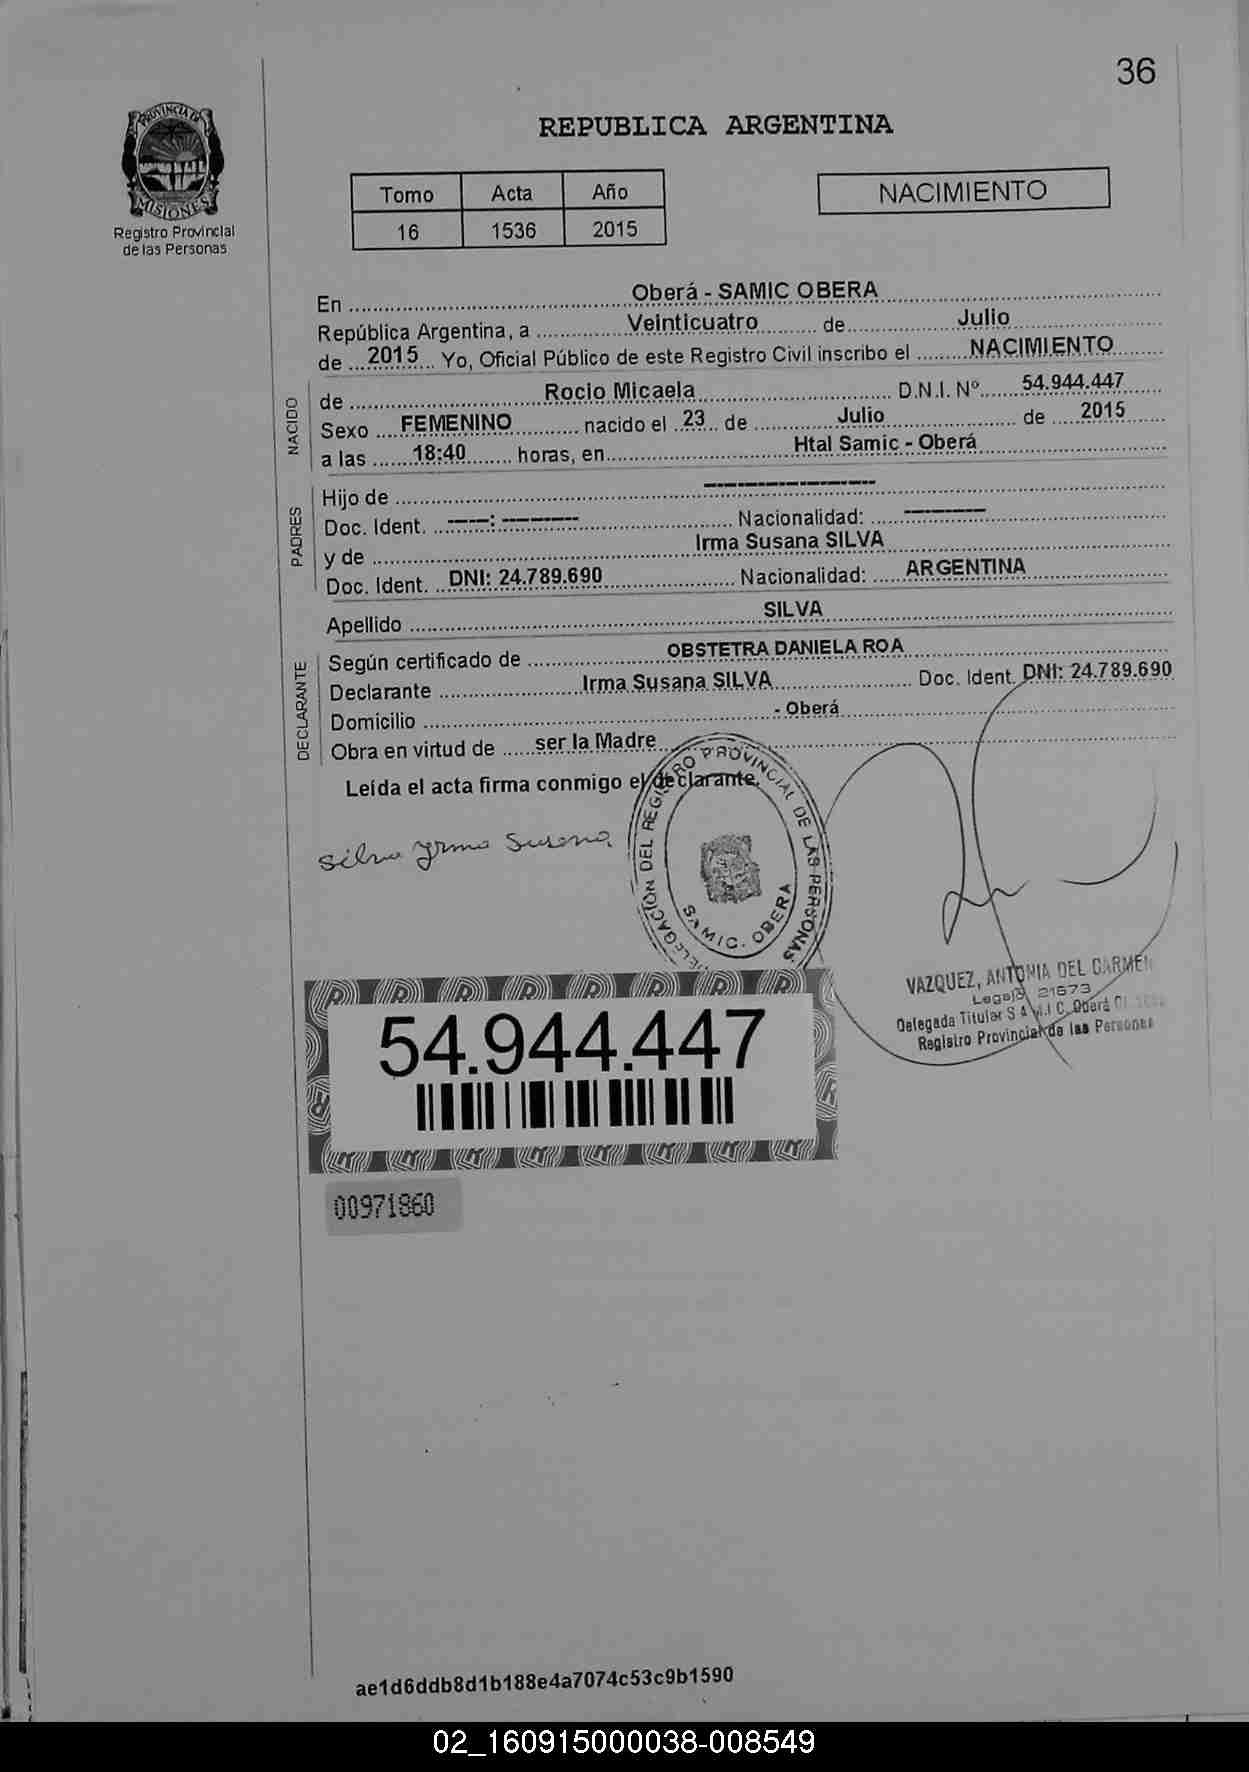 36
PROVINCIA DE
MISIONES
Registro Provincial
de las Personas
REPUBLICA ARGENTINA
Tomo Acta Año
16 1536 2015
NACIMIENTO
En Oberá - SAMIC OBERA
República Argentina, a Veinticuatro de Julio
de 2015 Yo, Oficial Público de este Registro Civil inscribo el NACIMIENTO
NACIDO
de Rocio Micaela D.N.I. Nº 54.944.447
Sexo FEMENINO nacido el 23 de Julio de 2015
a las 18:40 horas, en Htal Samic - Oberá
PADRES
Hijo de --------------------
Doc. Ident. -----: --------- Nacionalidad: ----------
y de Irma Susana SILVA
Doc. Ident. DNI: 24.789.690 Nacionalidad: ARGENTINA
Apellido SILVA
DECLARANTE
Según certificado de OBSTETRA DANIELA ROA
Declarante Irma Susana SILVA Doc. Ident. DNI: 24.789.690
Domicilio - Oberá
Obra en virtud de ser la Madre
Leída el acta firma conmigo el declarante.
Silva Yrma Susana
DELEGACIÓN DEL REGISTRO PROVINCIAL DE LAS PERSONAS
SAMIC. OBERA
VAZQUEZ, ANTONIA DEL CARMEN
Legajo 21573
Delegada Titular S.A.M.I.C. Oberá
Registro Provincial de las Personas
54.944.447
00971860
ae1d6ddb8d1b188e4a7074c53c9b1590
02_160915000038-008549